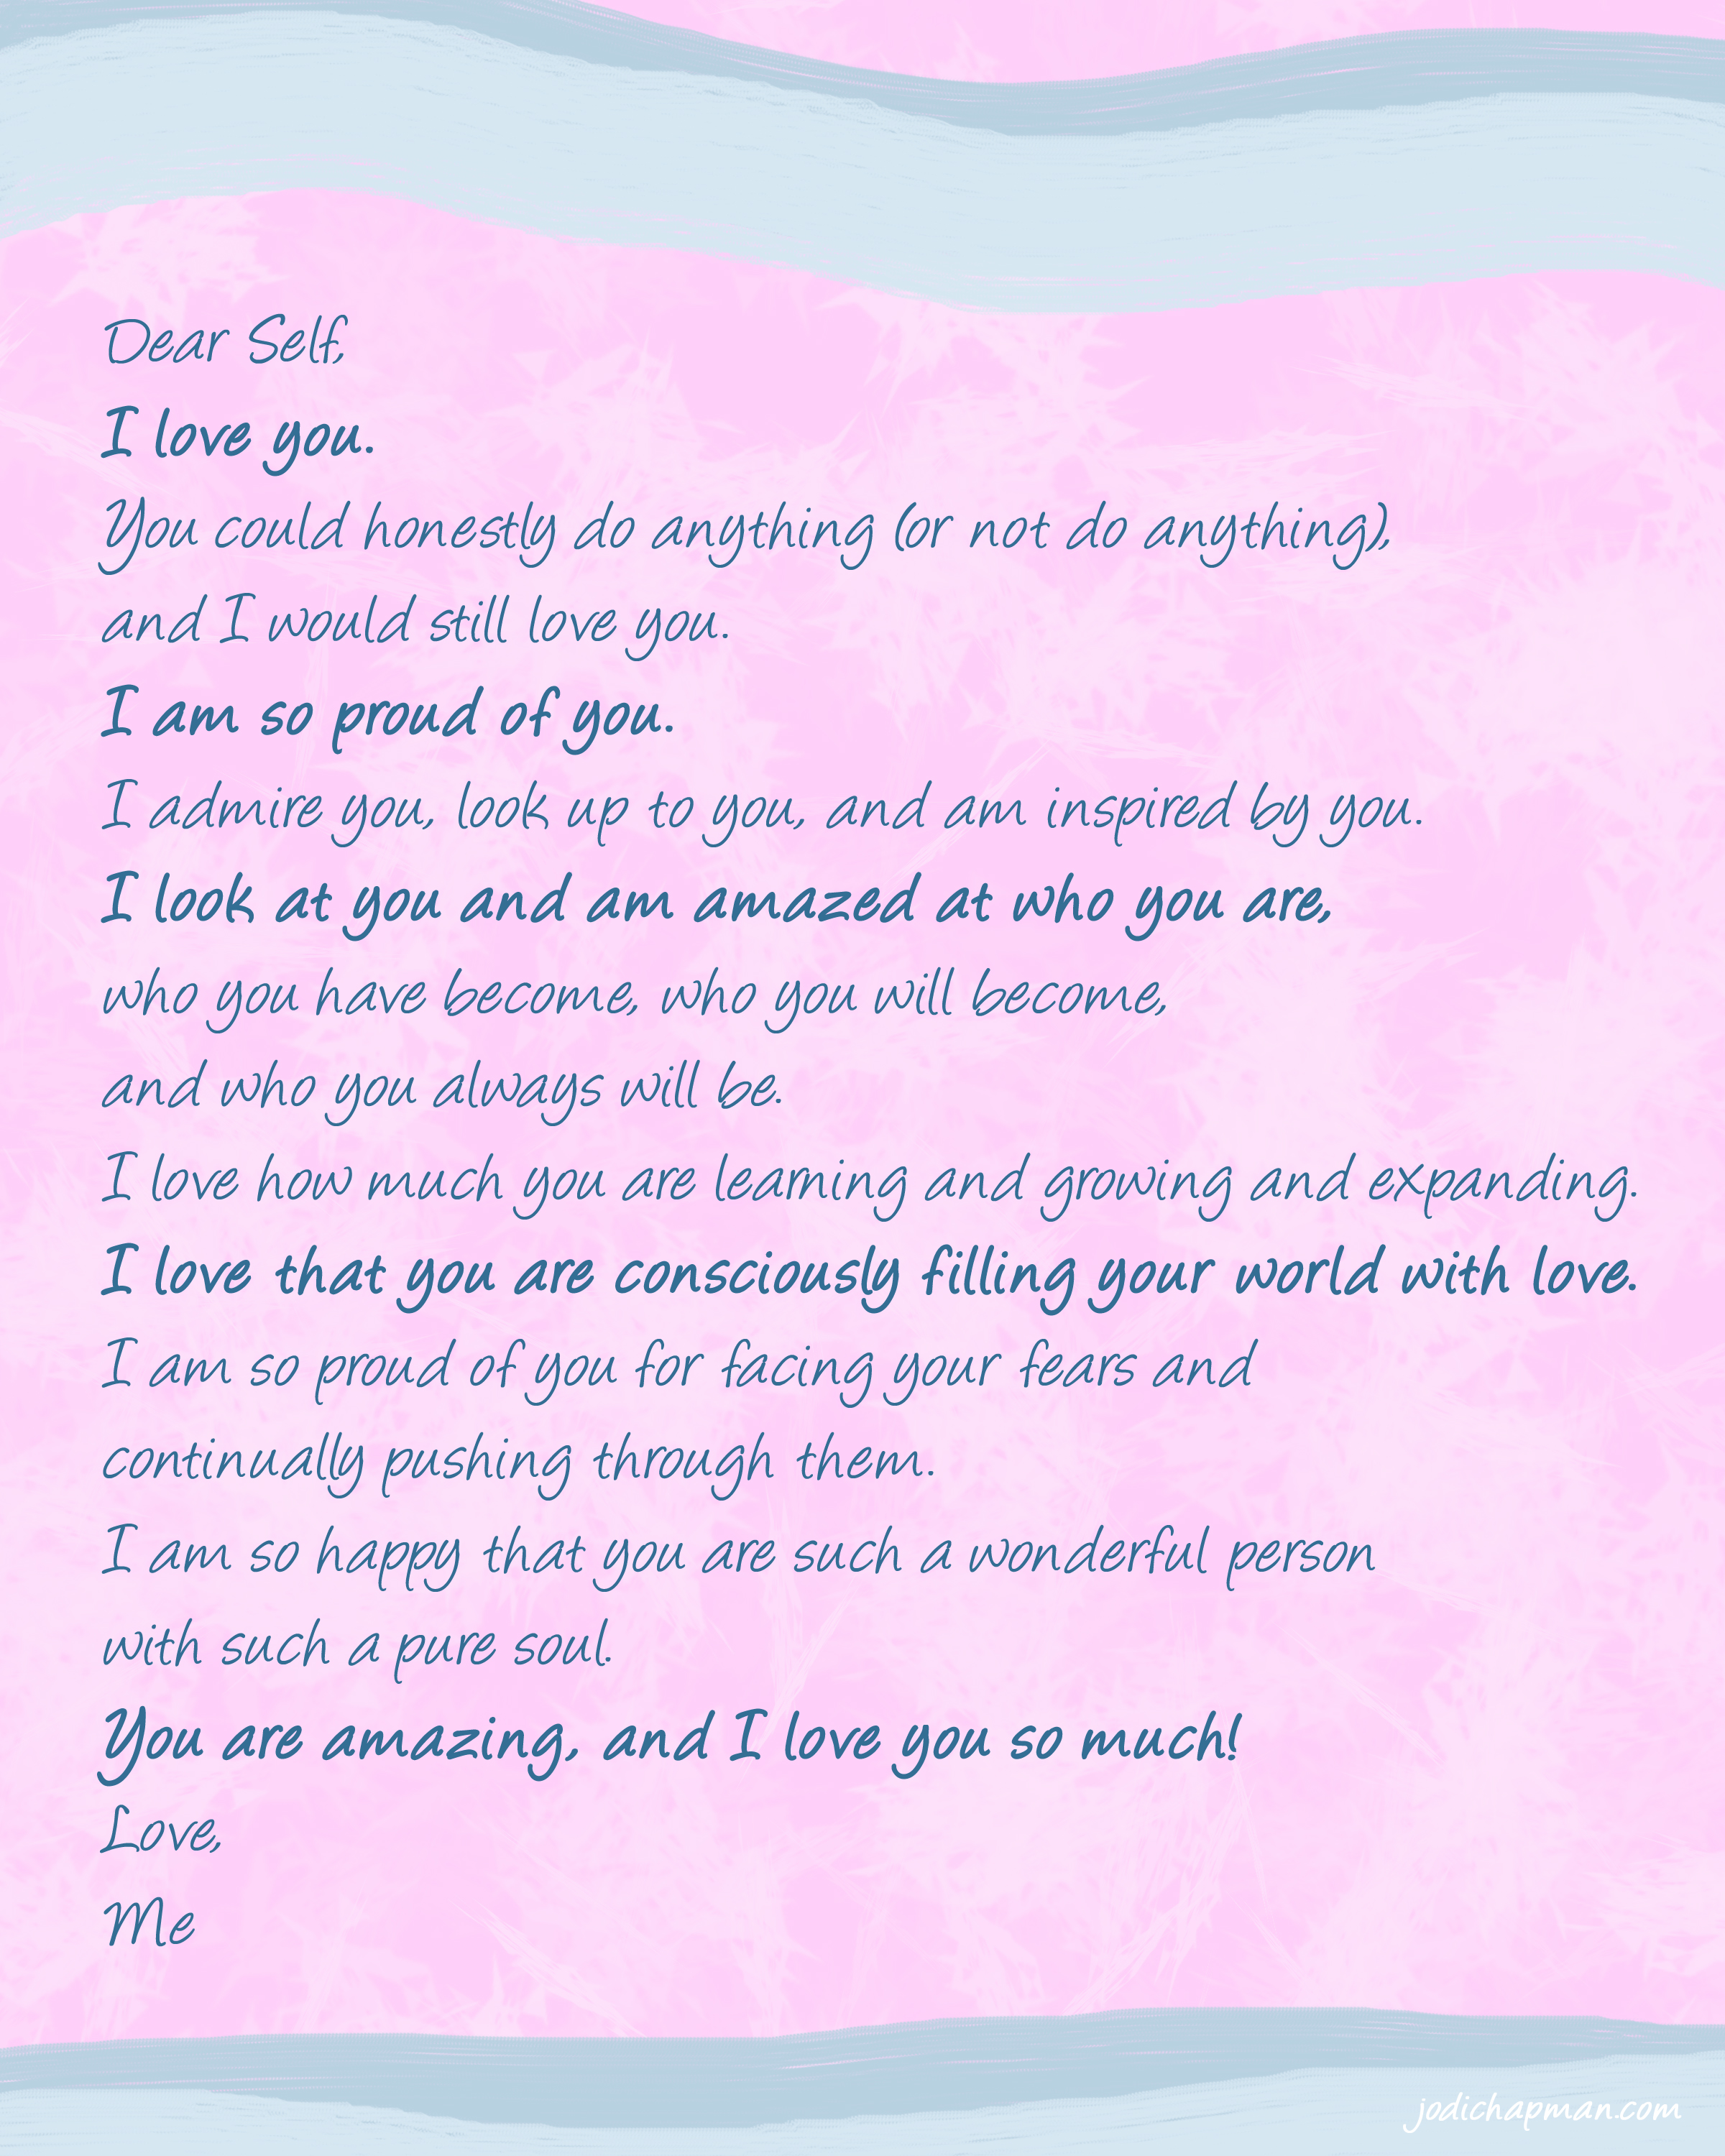 Dear Self,
I love you.
You could honestly do anything (or not do anything),
and I would still love you.
I am so proud of you.
I admire you, look up to you, and am inspired by you.
I look at you and am amazed at who you are,
who you have become, who you will become,
and who you always will be.
I love how much you are learning and growing and expanding.
I love that you are consciously filling your world with love.
I am so proud of you for facing your fears and
continually pushing through them.
I am so happy that you are such a wonderful person
with such a pure soul.
You are amazing, and I love you so much!
Love,
Me
jodichapman.com